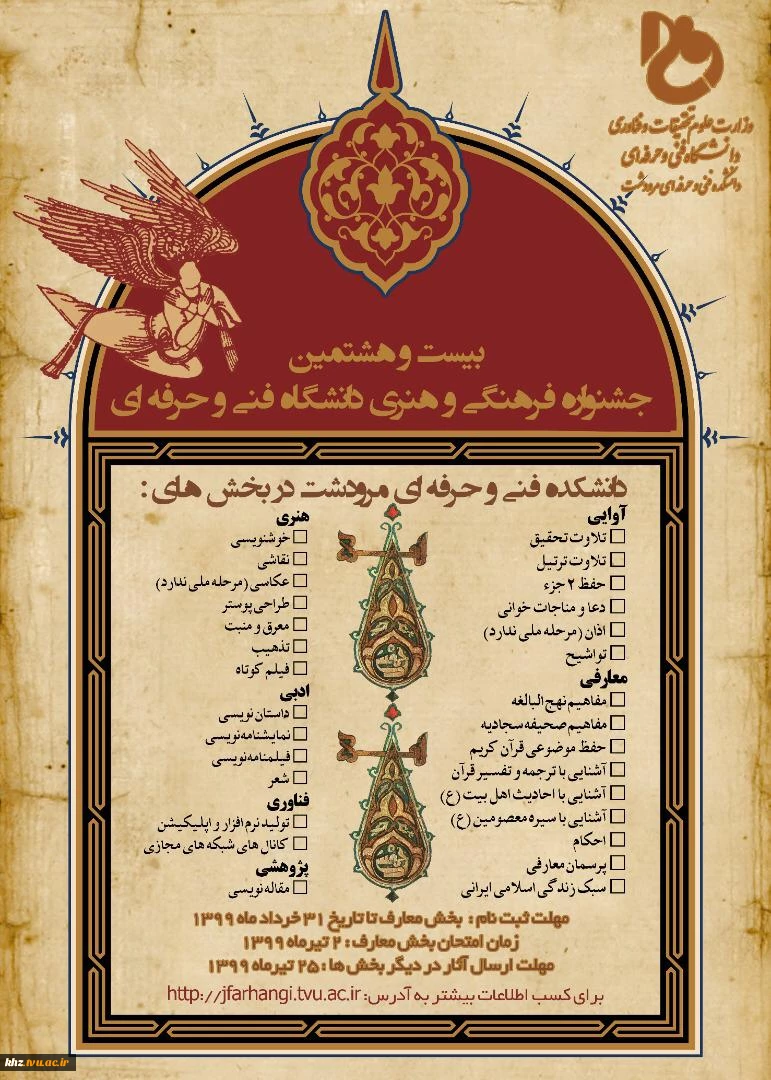 وزارت علوم تحقیقات و فناوری
دانشگاه فنی و حرفه ای
دانشکده فنی و حرفه ای مرودشت
بیست و هشتمین
جشنواره فرهنگی و هنری دانشگاه فنی و حرفه ای
دانشکده فنی و حرفه ای مرودشت در بخش های :
آوایی
تلاوت تحقیق
تلاوت ترتیل
حفظ ۲ جزء
دعا و مناجات خوانی
اذان (مرحله ملی ندارد)
تواشیح
معارفی
مفاهیم نهج البالغه
مفاهیم صحیفه سجادیه
حفظ موضوعی قرآن کریم
آشنایی با ترجمه و تفسیر قرآن
آشنایی با احادیث اهل بیت (ع)
آشنایی با سیره معصومین (ع)
احکام
پرسمان معارفی
سبک زندگی اسلامی ایرانی
هنری
خوشنویسی
نقاشی
عکاسی (مرحله ملی ندارد)
طراحی پوستر
معرق و منبت
تذهیب
فیلم کوتاه
ادبی
داستان نویسی
نمایشنامه نویسی
فیلمنامه نویسی
شعر
فناوری
تولید نرم افزار و اپلیکیشن
کانال های شبکه های مجازی
پژوهشی
مقاله نویسی
مهلت ثبت نام : بخش معارف تا تاریخ ۳۱ خرداد ماه ۱۳۹۹
زمان امتحان بخش معارف : ۲ تیرماه ۱۳۹۹
مهلت ارسال آثار در دیگر بخش ها : ۲۵ تیرماه ۱۳۹۹
برای کسب اطلاعات بیشتر به آدرس: http://jfarhangi.tvu.ac.ir
khz.tvu.ac.ir